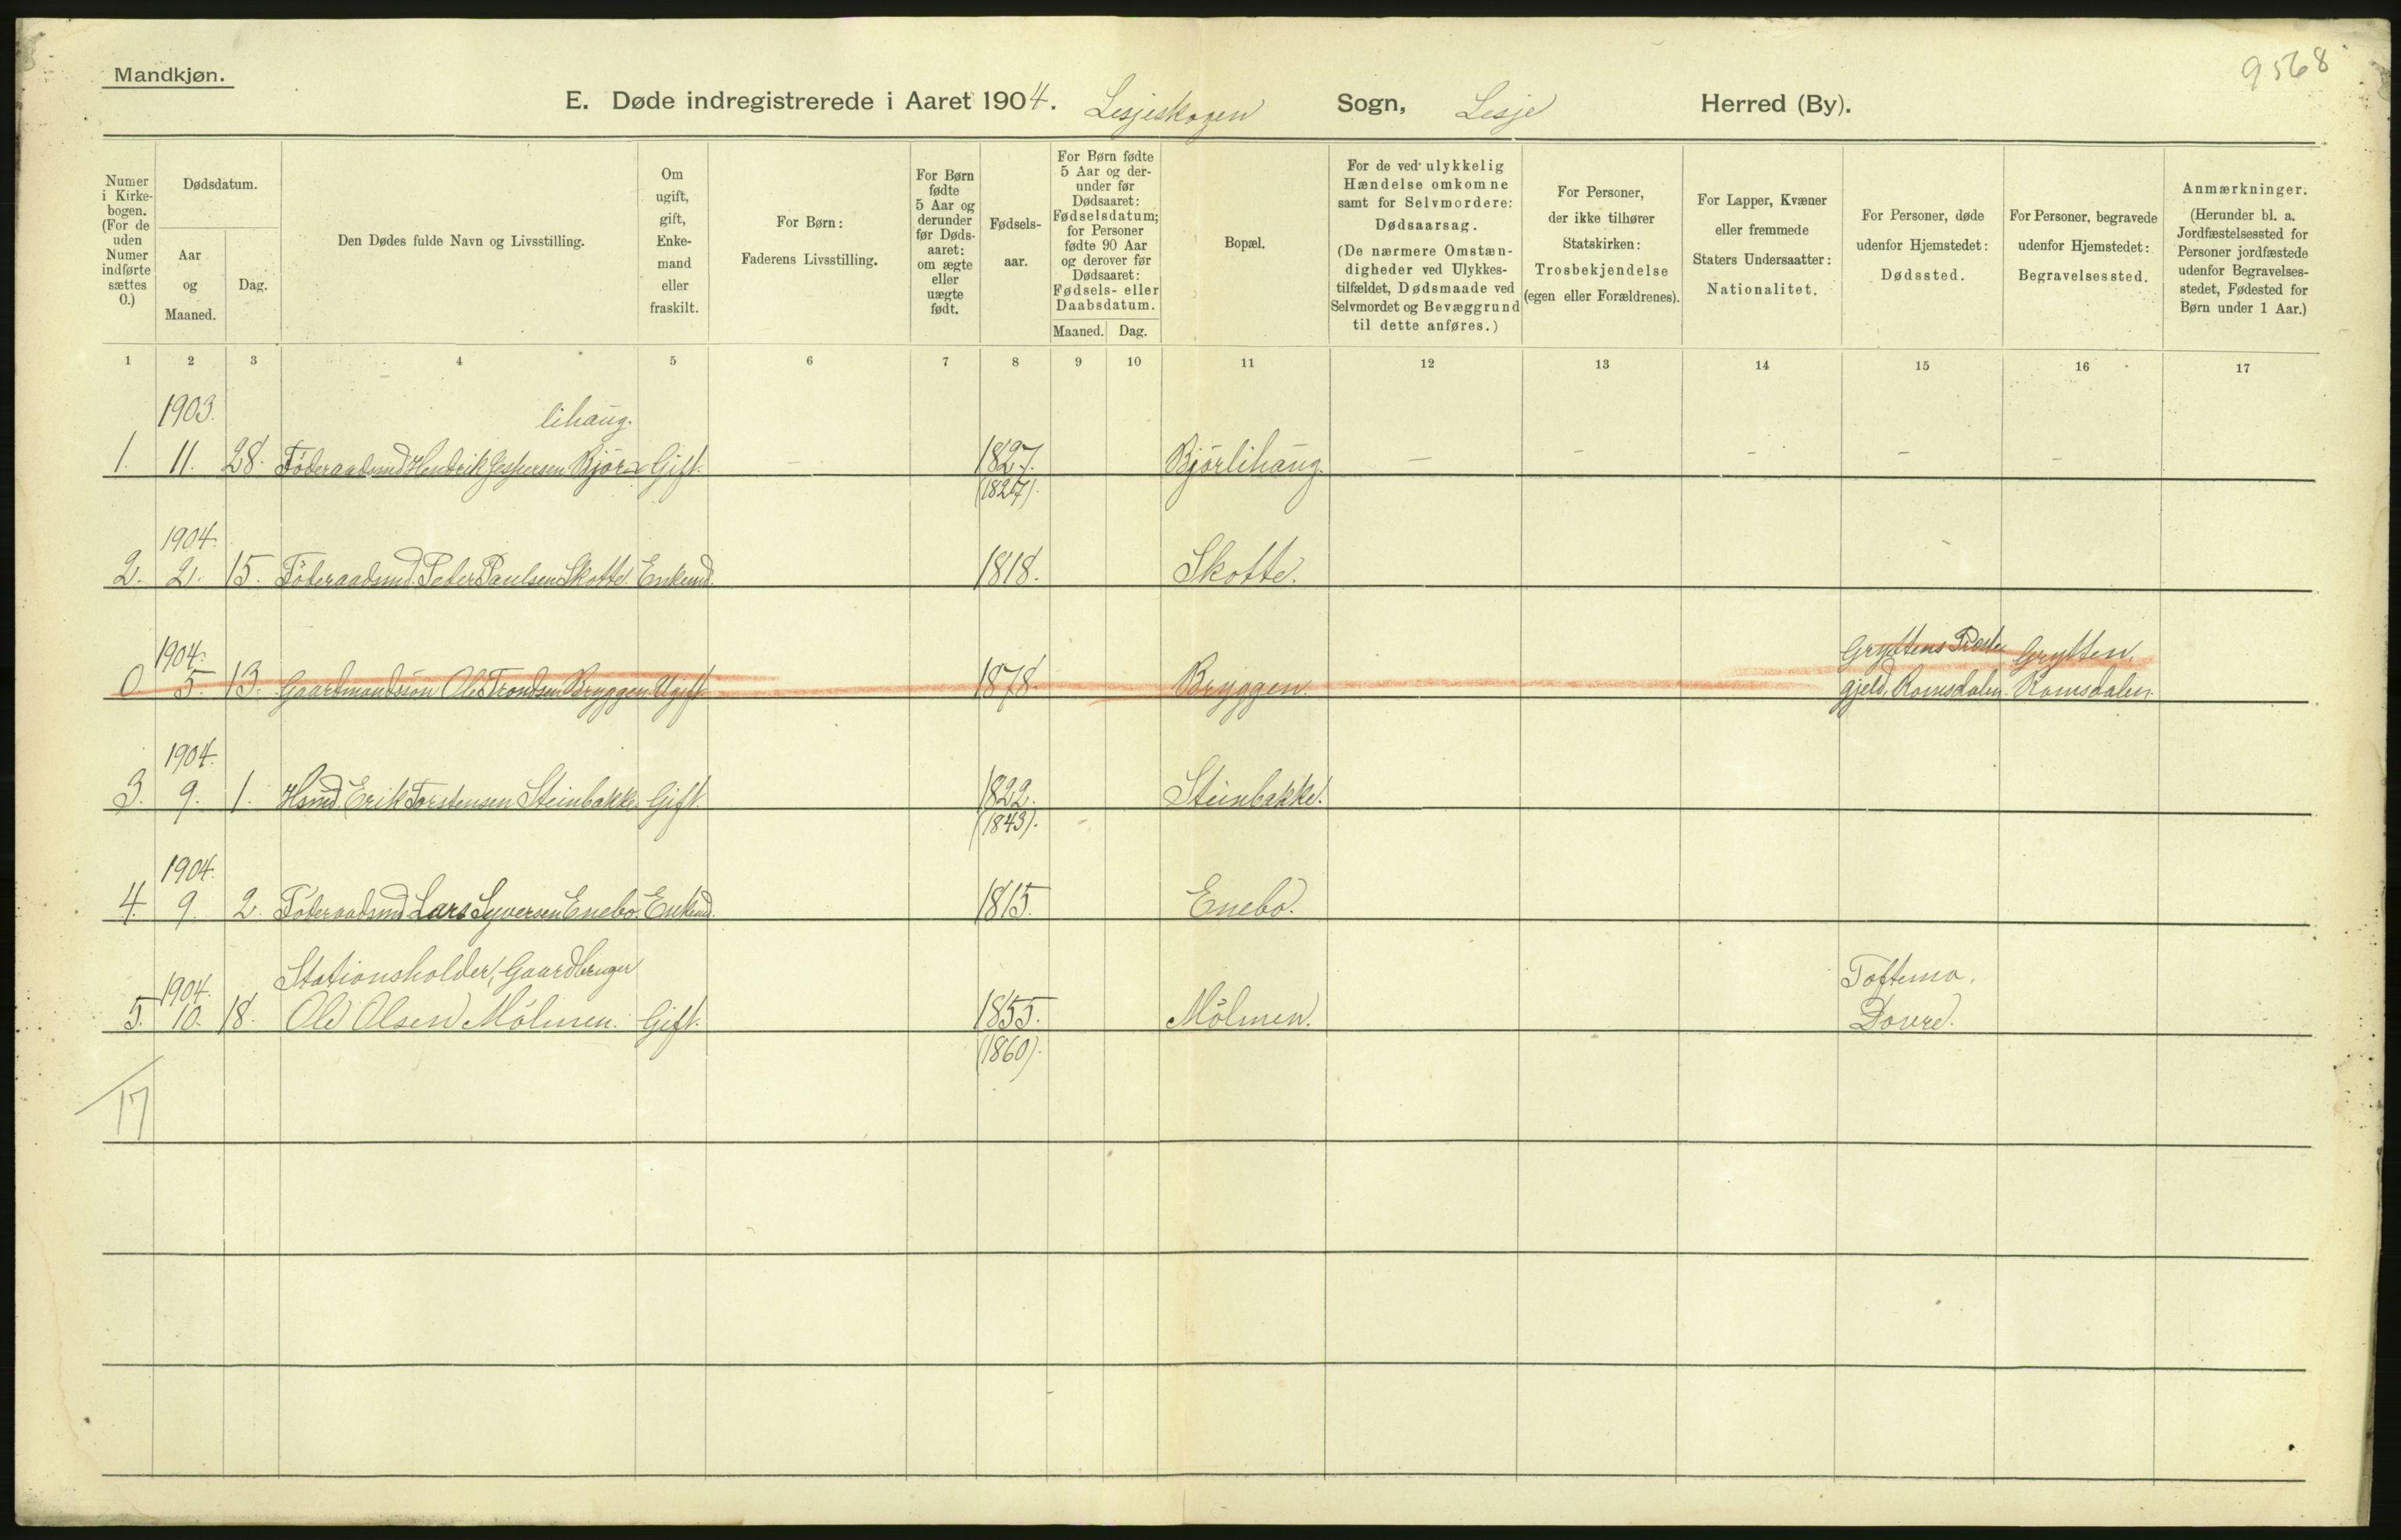 Mandkjøn.
9568
E. Døde indregistrerede i Aaret 1904. Lesjeskogen Sogn, Lesje Herred (By).
Numer i Kirkebogen. (For de uden Numer indførte sættes 0.)
Dødsdatum.
Aar og Maaned.
Dag.
Den Dødes fulde Navn og Livsstilling.
Om ugift, gift, Enkemand eller fraskilt.
For Børn: Faderens Livsstilling.
For Børn fødte 5 Aar og derunder før Dødsaaret: om ægte eller uægte født.
Fødselsaar.
For Børn fødte 5 Aar og derunder før Dødsaaret: Fødselsdatum; for Personer fødte 90 Aar og derover før Dødsaaret: Fødsels- eller Daabsdatum.
Maaned. Dag.
Bopæl.
For de ved ulykkelig Hændelse omkomne samt for Selvmordere: Dødsaarsag. (De nærmere Omstændigheder ved Ulykkestilfældet, Dødsmaade ved Selvmordet og Bevæggrund til dette anføres.)
For Personer, der ikke tilhører Statskirken: Trosbekjendelse (egen eller Forældrenes).
For Lapper, Kvæner eller fremmede Staters Undersaatter: Nationalitet.
For Personer, døde udenfor Hjemstedet: Dødssted.
For Personer, begravede udenfor Hjemstedet: Begravelsessted.
Anmærkninger. (Herunder bl. a. Jordfæstelsessted for Personer jordfæstede udenfor Begravelsesstedet, Fødested for Børn under 1 Aar.)
1 2 3 4 5 6 7 8 9 10 11 12 13 14 15 16 17
1903. lihaug.
1. 11. 28. Föderaadsmd Hendrik Jespersen Björ- Gift. – 1827. Björlihaug. – – – – –
(1827).
1904.
2. 2. 15. Föderaadsmd. Peder Paulsen Skotte. Enkemd. 1818. Skotte.
1904. Gryttens Præste Grytten,
0 5. 13. Gaardmandssön Ole Trondsen Bryggen Ugift. 1878. Bryggen. gjeld, Romsdalen. Romsdalen.
1904.
3. 9. 1. Hsmd. Erik Torstensen Steinbakke Gift. 1822. Steinbakke.
(1843).
1904.
4. 9. 2. Föderaadsmd Lars Syversen Enebo. Enkemd. 1815. Enebo.
Stationsholder, Gaardbruger Toftemo,
1904.
5. 10. 18. Ole Olsen Mölmen. Gift. 1855. Mölmen. Dovre.
(1860).
17